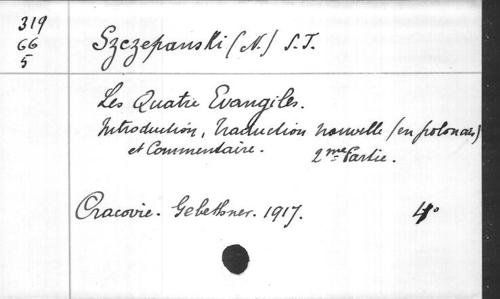 319
66
5
Szczepanski (N.) S.J.
Les Quatre Evangiles.
Introduction, traduction nouvelle (en polonais)
et Commentaire. 2me Partie.
Cracovie. Gebethner. 1917. 4°